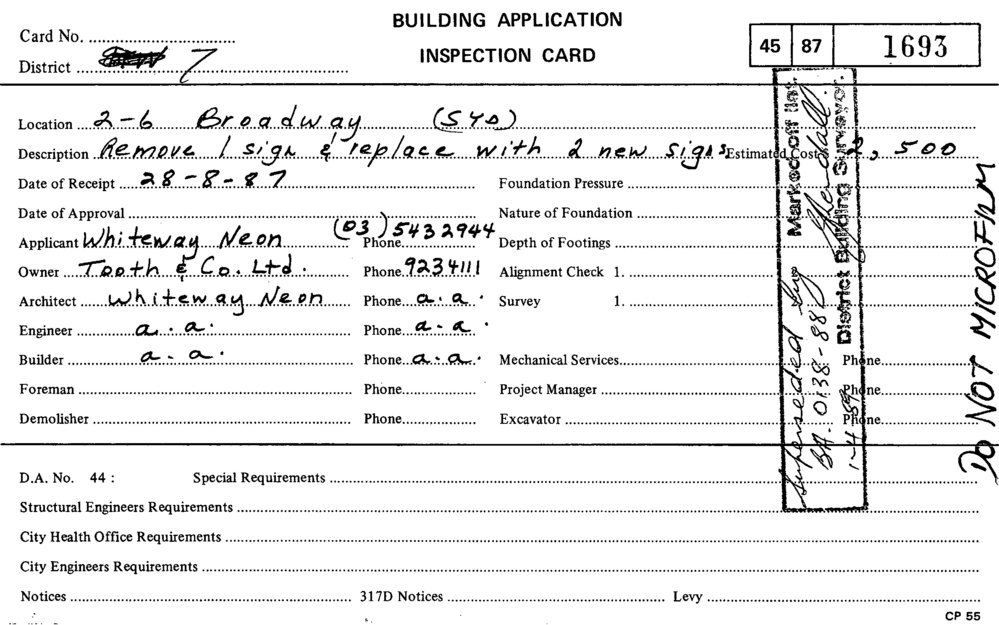 BUILDING APPLICATION
INSPECTION CARD
Card No.
District 7
45 87 1693
Location 2-6 Broadway (SYD)
Description Remove 1 sign & replace with 2 new signs Estimated Cost 2,500
Date of Receipt 28-8-87 Foundation Pressure
Date of Approval Nature of Foundation
Applicant Whiteway Neon Phone (03) 5432944 Depth of Footings
Owner Tooth & Co. Ltd. Phone 9234111 Alignment Check 1.
Architect Whiteway Neon Phone a.a. Survey 1.
Engineer a.a. Phone a-a.
Builder a-a. Phone a.a. Mechanical Services Phone
Foreman Phone Project Manager Phone
Demolisher Phone Excavator Phone
Marked off list.
District Building Surveyor.
superseded by
BA. 0138-88
1-4-89
DO NOT MICROFILM
D.A. No. 44 : Special Requirements
Structural Engineers Requirements
City Health Office Requirements
City Engineers Requirements
Notices 317D Notices Levy
CP 55